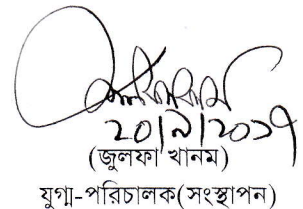 ২০/৯/২০১৭
(জুলফা খানম)
যুগ্ম-পরিচালক(সংস্থাপন)